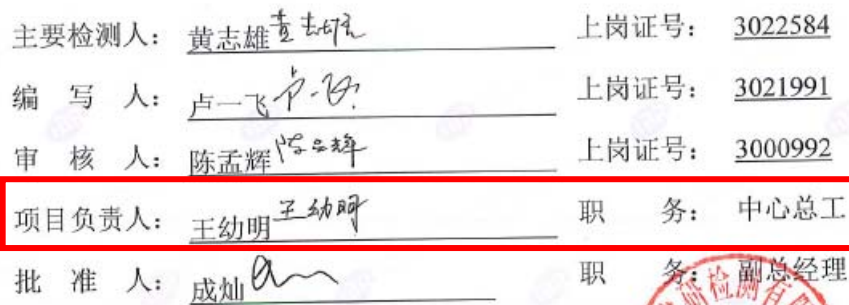 主要检测人： 黄志雄 黄志雄 上岗证号： 3022584
编 写 人： 卢一飞 卢一飞 上岗证号： 3021991
审 核 人： 陈孟辉 陈孟辉 上岗证号： 3000992
项目负责人： 王幼明 王幼明 职 务： 中心总工
批 准 人： 成灿 职 务： 副总经理
检测有